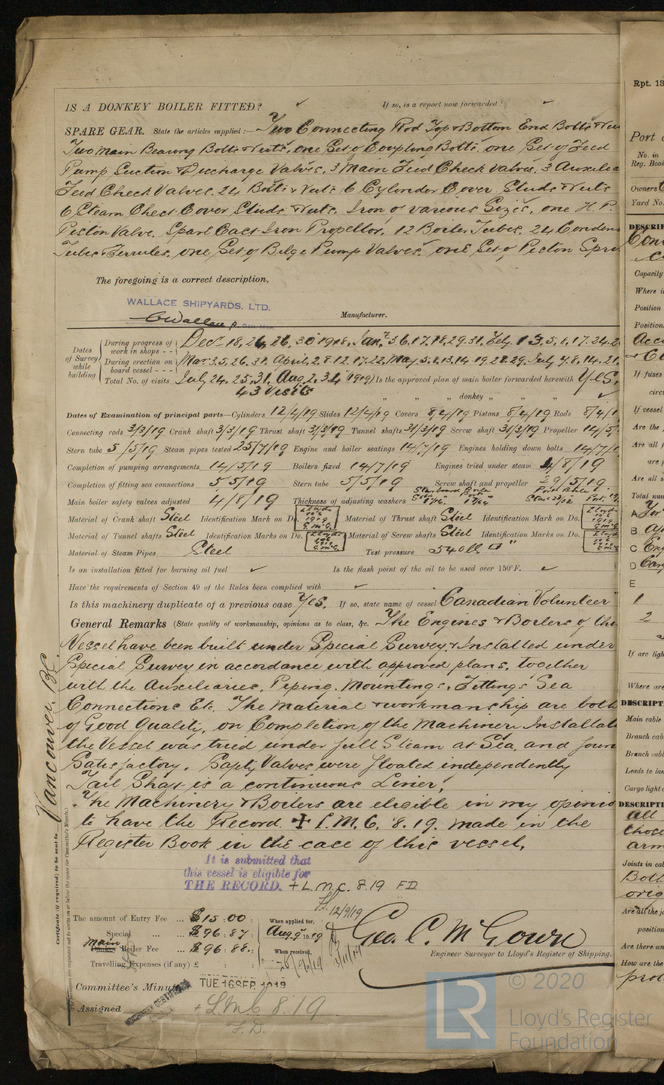 IS A DONKEY BOILER FITTED? ✓ If so, is a report now forwarded? ✓
SPARE GEAR. State the articles supplied:— Two Connecting Rod Top & Bottom End Bolts &
Two Main Bearing Bolts & Nuts, one Set of Coupling Bolts, one Set of Feed
Pump Suction & Discharge Valves, 3 Main Feed Check Valves, 3
Feed Check Valves, 24 Bolts & Nuts, 6 Cylinder Cover Studs & Nuts
6 Steam Chest Cover Studs & Nuts, Iron of various Sizes, one H.P.
Piston Valve, Spare Cast Iron Propeller, 12 Boiler Tubes, 24
Tubes & Ferrules, one Set of Bilge Pump Valves, one Set of Piston
The foregoing is a correct description,
WALLACE SHIPYARDS, LTD.
Manufacturer.
Dates of Survey while building
During progress of work in shops - - Dec. 18, 24, 26, 30, 1918, Jan. 3, 6, 17, 18, 29, 31, Feby. 1, 3, 5, 1, 17, 24, 2
During erection on board vessel - - - Mar. 3, 5, 26, 31, April, 2, 8, 12, 17, 22, May, 5, 13, 14, 19, 28, 29, July 4, 8, 14, 21
Total No. of visits July 24, 25, 31, Aug. 2, 3, 4, 1919 Is the approved plan of main boiler forwarded herewith Yes.
43 Visits " " " donkey " " " ✓
Dates of Examination of principal parts—Cylinders 12/4/19 Slides 12/4/19 Covers 8/2/19 Pistons 8/2/19 Rods
Connecting rods 3/3/19 Crank shaft 3/3/19 Thrust shaft 3/3/19 Tunnel shafts 31/3/19 Screw shaft 31/3/19 Propeller 14/5/
Stern tube 5/5/19 Steam pipes tested 25/7/19 Engine and boiler seatings 14/7/19 Engines holding down bolts 14/7/1
Completion of pumping arrangements 14/5/19 Boilers fixed 14/7/19 Engines tried under steam 4/8/19
Completion of fitting sea connections 5/5/19 Stern tube 5/5/19 Screw shaft and propeller 29/5/19
Main boiler safety valves adjusted 4/8/19 Thickness of adjusting washers
Material of Crank shaft Steel Identification Mark on Do. Material of Thrust shaft Steel Identification Mark on Do.
Material of Tunnel shafts Steel Identification Marks on Do. Material of Screw shafts Steel Identification Marks on Do.
Material of Steam Pipes Steel Test pressure 540 lb □"
Is an installation fitted for burning oil fuel ✓ Is the flash point of the oil to be used over 150°F. ✓
Have the requirements of Section 49 of the Rules been complied with ✓
Is this machinery duplicate of a previous case Yes. If so, state name of vessel "Canadian Volunteer"
General Remarks (State quality of workmanship, opinions as to class, &c. The Engines & Boilers of the
Vessel have been built under Special Survey & Installed under
Special Survey in accordance with approved plans, together
with the Auxiliaries, Piping, Mountings, Fittings Sea
Connections Etc. The Material & workmanship are both
of Good Quality, on Completion of the Machinery
the Vessel was tried under full Steam at Sea, and
Satisfactory. Safety Valves were floated independently
Tail Shaft is a continuous Liner,
The Machinery & Boilers are eligible in my
to have the Record ✠ L.M.C. 8.19. made in the
Register Book in the case of this vessel,
It is submitted that
this vessel is eligible for
THE RECORD. + L.M.C. 8.19 F.D.
12/9/19
The amount of Entry Fee .. £15.00 :
Special .. £96.87 :
Main Boiler Fee .. £96.88 :
Travelling Expenses (if any) £
When applied for, Aug 9th 1919
When received,
Geo. C. McGown
Engineer Surveyor to Lloyd's Register of Shipping.
Committee's Minute TUE 16 SEP 1919
Assigned + L.M.C. 8.19
F.D.
Vancouver, B.C.
Certificate (if required) to be sent to
Rpt. 13
Port o
No. in
Reg. Book
Owners
Yard No.
Capacity
Where i
Position
Position
If fuses
circ
If vessel
Are the
Are all f
Are all s
Total num
A
B
C
D
E
1
2
If are ligh
Where are
DESCRIPT
Main cable
Branch cab
Branch cabl
Leads to la
Cargo light c
DESCRIPTI
all
Joints in cab
Are all the jo
position
Are there an
How are the
© 2020
LR
Lloyd's Register
Foundation